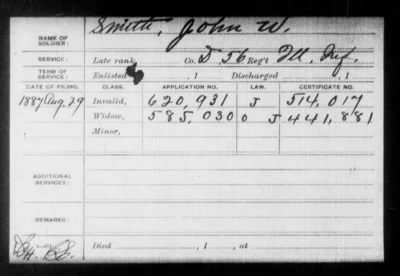 NAME OF SOLDIER: Smith, John W.
SERVICE: Late rank, Co. D, 56 Reg't Ill. Inf.
TERM OF SERVICE: Enlisted , 1 Discharged , 1
DATE OF FILING. CLASS. APPLICATION NO. LAW. CERTIFICATE NO.
1887 Aug. 29 Invalid, 620,931 J 514,017
Widow, 585,030 O J 441,881
Minor,
ADDITIONAL SERVICES:
REMARKS:
Died , 1 , at